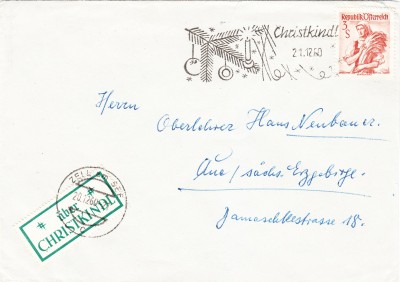 Christkindl
21.12.60
Republik Österreich
3 S
Herrn
Oberlehrer Hans Neubauer.
Aue / sächs. Erzgebirge.
Damaschkestrasse 18.
ZELL AM SEE
20.12.60
über
CHRISTKINDL